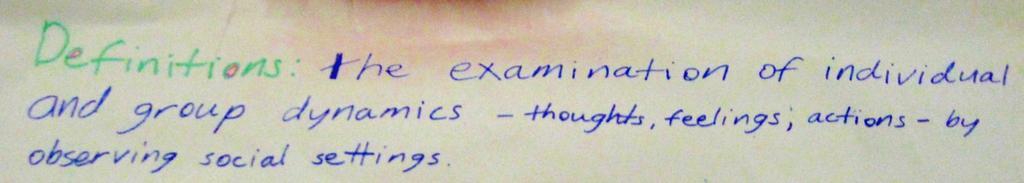 Definitions: the examination of individual
and group dynamics - thoughts, feelings; actions - by
observing social settings.